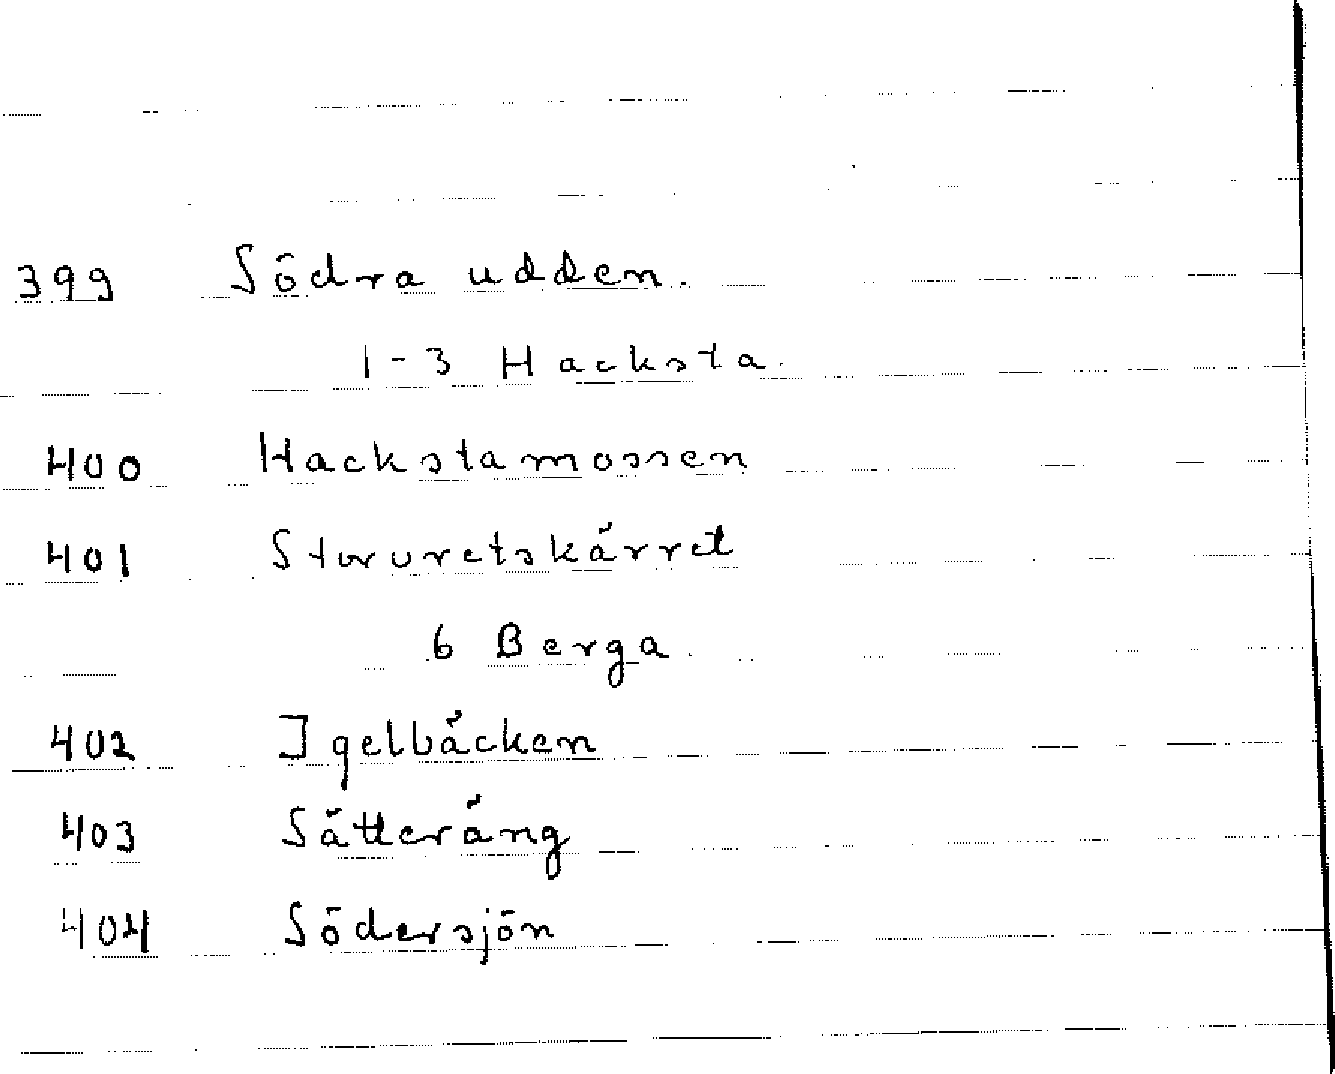 399 Södra udden.
1-3 Hacksta.
400 Hackstamossen
401 Storuretskärret
6 Berga.
402 Igelbäcken
403 Sätteräng
404 Södersjön